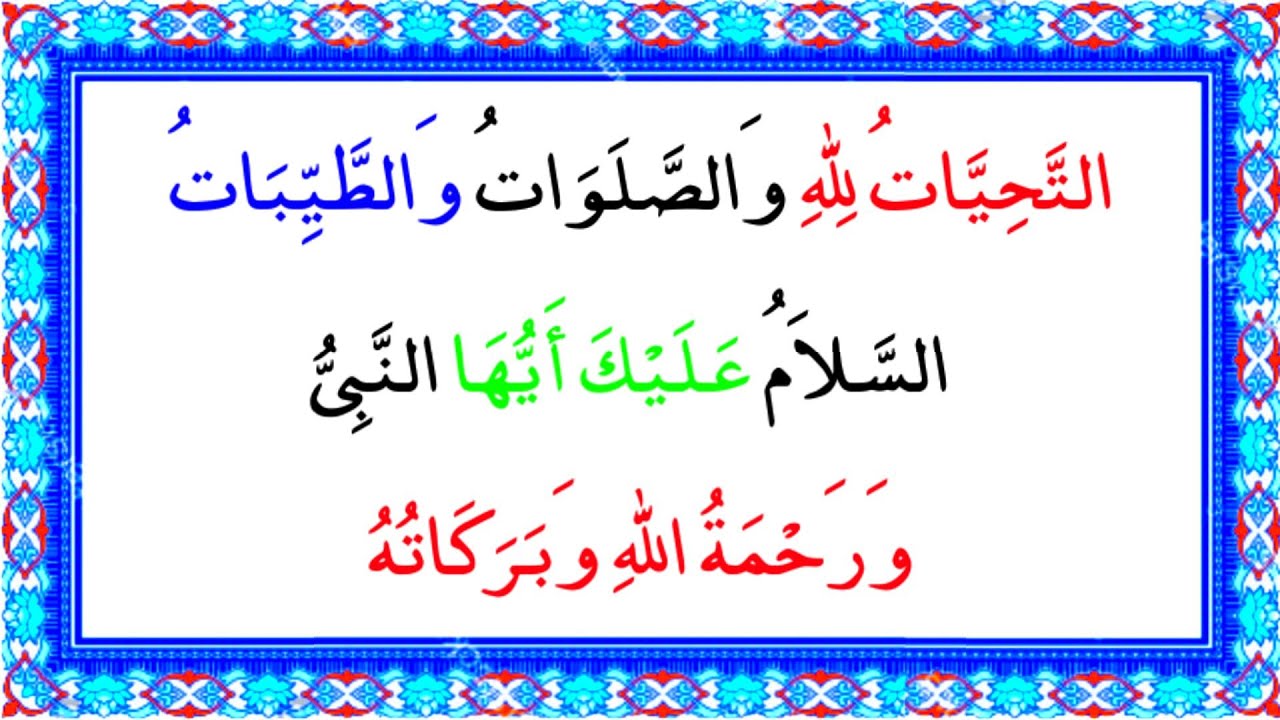 التَّحِيَّاتُ لِلّٰهِ وَالصَّلَوَاتُ وَالطَّيِّبَاتُ
السَّلاَمُ عَلَيْكَ أَيُّهَا النَّبِىُّ
وَرَحْمَةُ اللّٰهِ وَبَرَكَاتُهُ